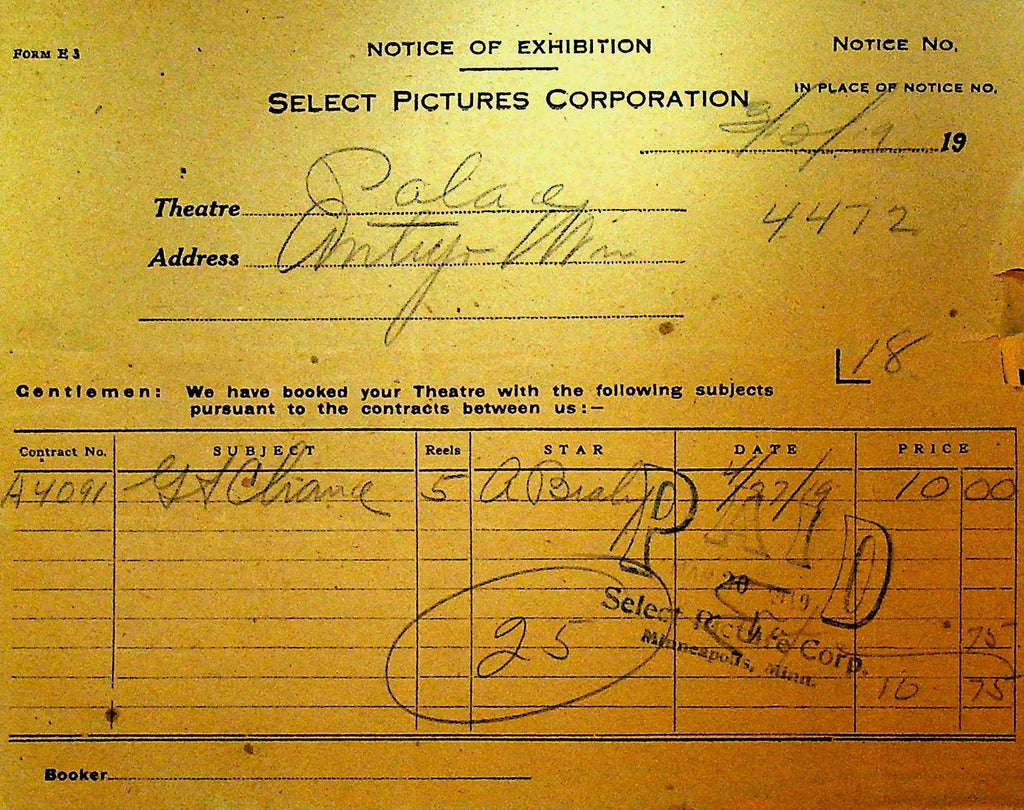 FORM E 3
NOTICE OF EXHIBITION
NOTICE NO.
SELECT PICTURES CORPORATION
IN PLACE OF NOTICE NO.
3/12/19 19
Theatre Palace
4472
Address Antigo Win
L18
Gentlemen: We have booked your Theatre with the following subjects
pursuant to the contracts between us:—
Contract No. SUBJECT Reels STAR DATE PRICE
A4091 5 A Brady 4/27/19 10 00
PAID
20
25
Select Picture Corp.
Minneapolis, Minn.
75
10 75
Booker